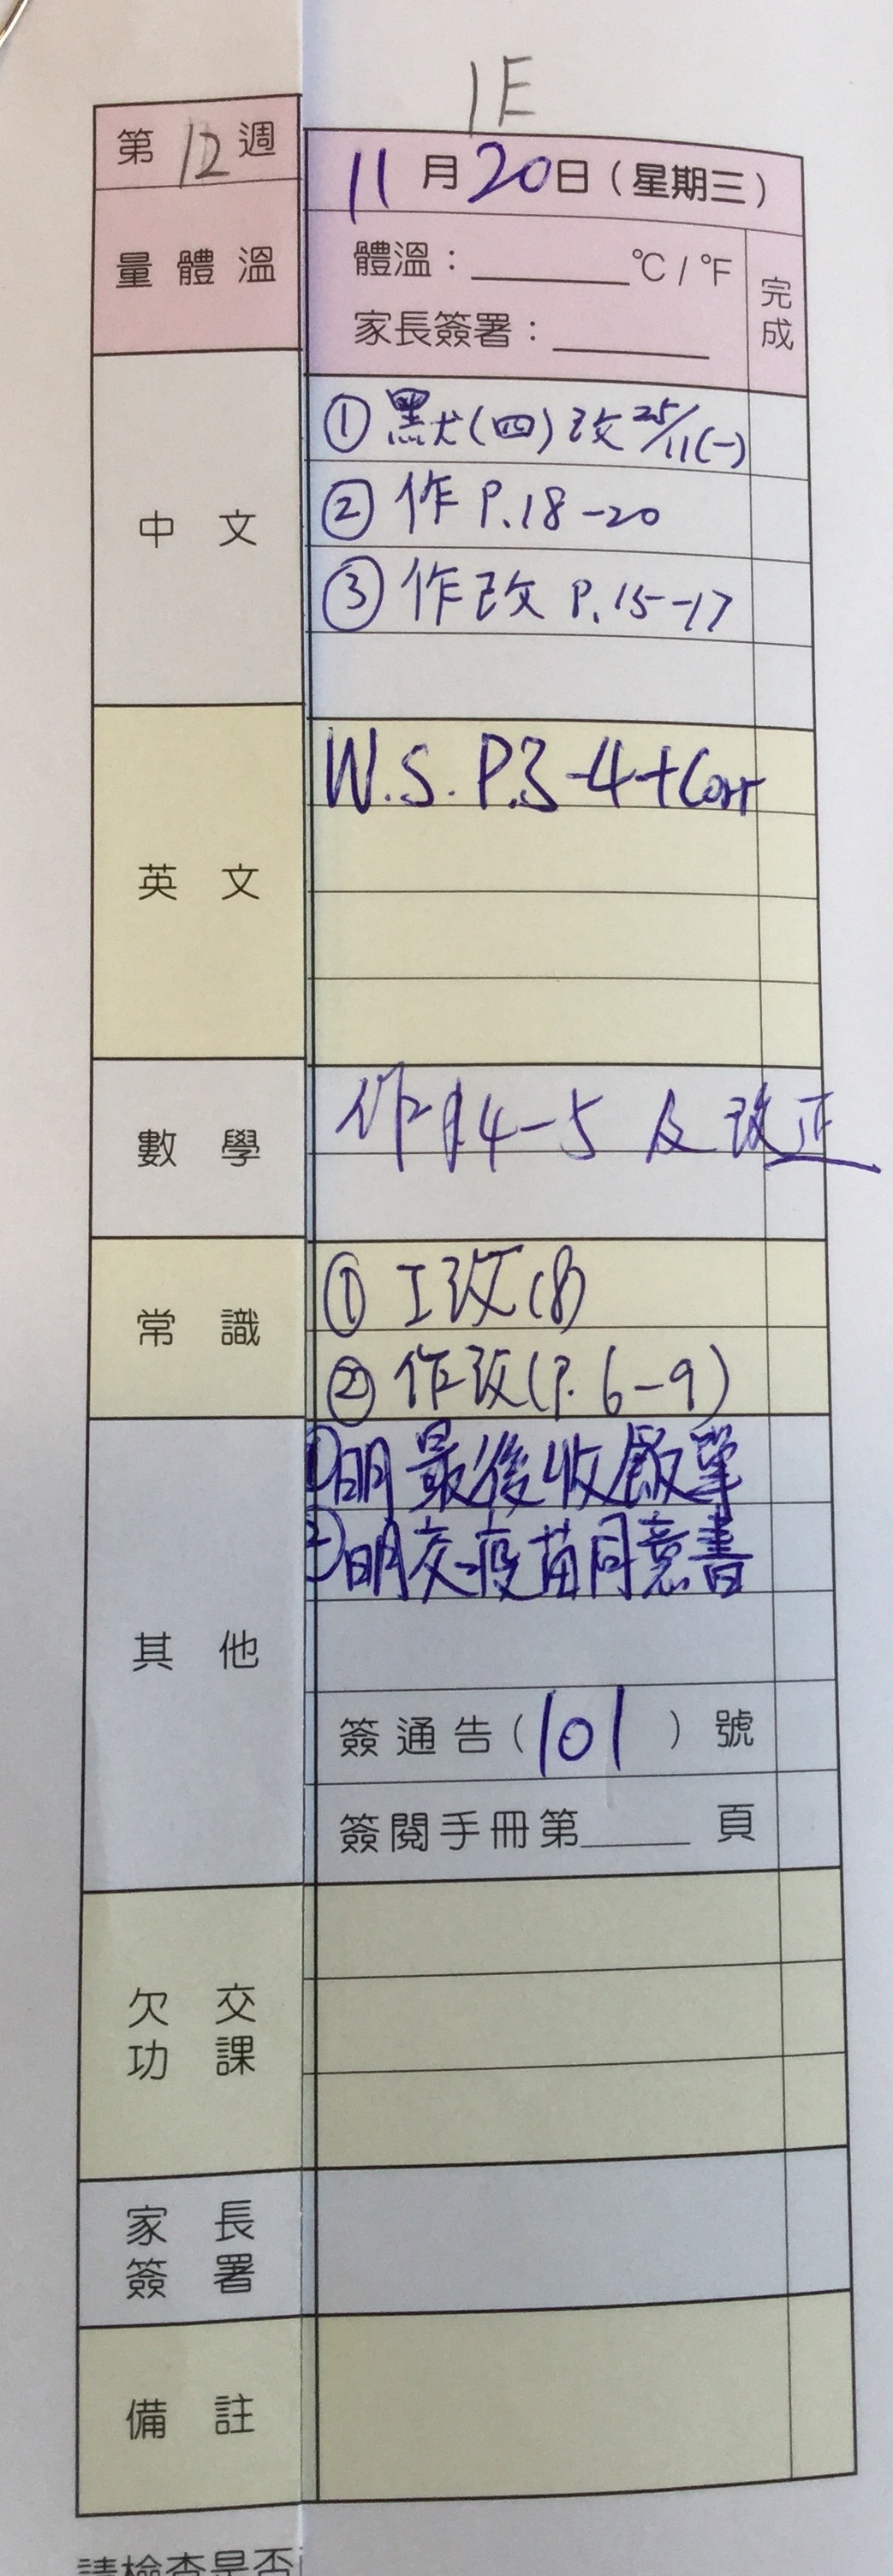 1E
第 12 週
11 月 20 日 ( 星期三 )
量 體 溫
體溫 : ______ °C / °F
完成
家長簽署 : ______
中 文
① 默(四) 改 25/11(一)
② 作 P.18-20
③ 作改 P.15-17
英 文
W.S. P.3-4+Corr
數 學
作 P.4-5 及 改正
常 識
① 工改(8)
② 作改(P.6-9)
其 他
①明最後收飯單
②明交疫苗同意書
簽 通 告 ( 101 ) 號
簽 閱 手 冊 第 ______ 頁
欠 交
功 課
家 長
簽 署
備 註
請檢查是否